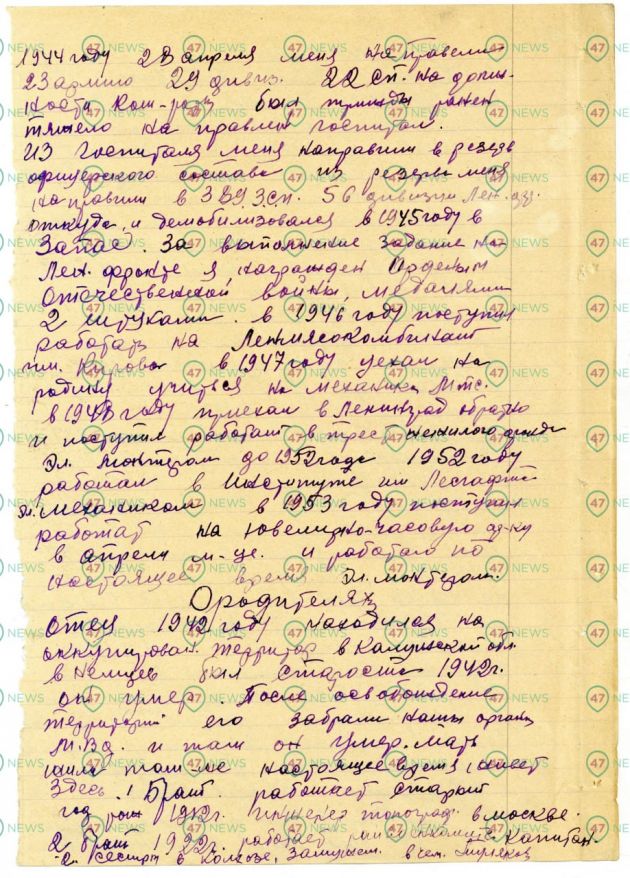 1944 году 23 апреля меня направели
23 армию 29 дивиз. 22 сп. на долж-
ности ком-роты был трижды ранен
тяжело на правлен госпитал.
Из Госпиталя меня направили в резерв
офицерского состава из резерва меня
на правили в З.С.П. 56 дивизии Лен.
откуда и демобилизовался в 1945 году в
Запас. За выполнение задание на
Лен. фронте я награжден Орденом
Отечественной войны, медалями
2 штуками. в 1946 году поступил
работать на Ленмясокомбинат
им. Кирова в 1947 году уехал на
родину учиться на механика М.т.с.
в 1948 году приехал в Ленинград обратно
и поступил работат в трест нежилого фонда
Эл. монтером до 1952 года 1952 году
работал в Институте им Лесгафта
Эл. механиком в 1953 году поступил
работат на Ювелирно-часовую ф-ку
в апреле м-це. и работаю по
настоящее время Эл. монтером.
О родителях
Отец 1942 году находился на
оккупирован. территор. в Калужской обл.
в Немцев был старостой 1942 г.
он умер. После освобождение
территорий его забрали наши органы
М.В.Д. и там он умер. Мать
жила там же настоящее время живет
Здесь. 1 Брат работает старший
год рож 1912 г. инженер топограф. в Москве.
2 брат 1922 г. работает Капитан.
2 сестры в Колхозе, Замужем.